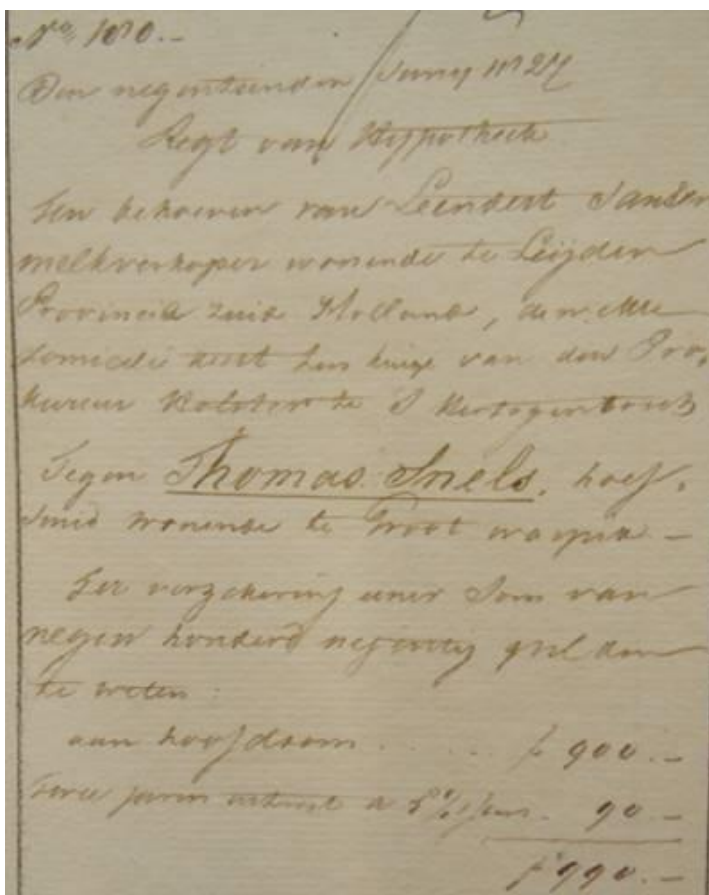 No 1010.-
Den negentienden Juny 1827
Regt van Hypotheek
Ten behoeven van Leendert Jansen
melkverkoper wonende te Leijden
Provincie Zuid Holland, dewelke
domicilie kiest ten huize van den Pro-
kureur Kolster te S Hertogenbosch
Tegen Thomas Snels, hoef-
smid wonende te Groot waspik -
Ter verzekering eener Som van
negen honderd negentig gulden
te weten:
aan hoofdsom ..... f 900.-
twee jaren intrest a 5% 's jaars. 90.-
f 990.-